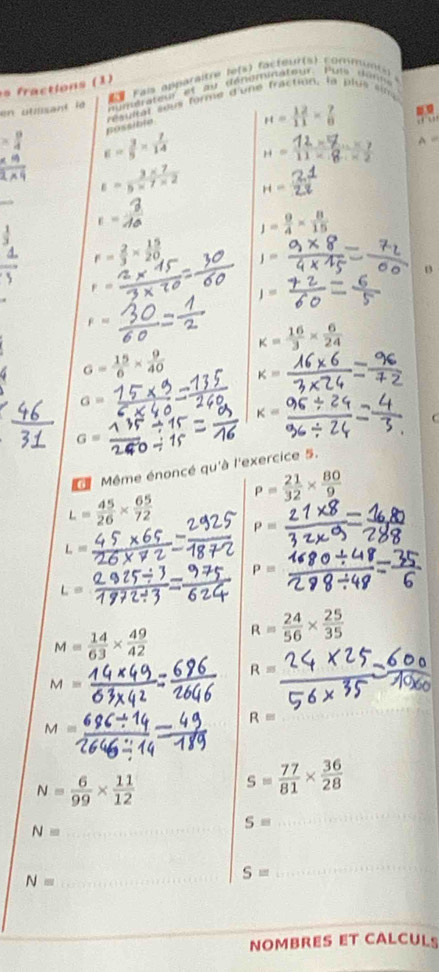 s fractions (1)
en utilisant le
5 Fais apparaître le(s) facteur(s) commun(s) a
numérateur et au dénominateur. Puis donne
résultat sous forme d'une fraction, la plus sim
possible.
E = 3/5 × 7/14
E = 3 × 7 / 5 × 7 × 2
E = 3/10
F = 2/3 × 15/20
F = 2 × 15 / 3 × 20 = 30/60
F = 30/60 = 1/2
G = 15/6 × 9/40
G = 15 × 9 / 6 × 40 = 135/240
G = 135 ÷ 15 / 240 ÷ 15 = 9/16
H = 12/11 × 7/8
H = 21/22
J = 9/4 × 8/15
J = 9 × 8 / 4 × 15 = 72/60
J = 72/60 = 6/5
K = 16/3 × 6/24
K = 16 × 6 / 3 × 24 = 96/72
K = 96 ÷ 24 / 96 ÷ 24 = 4/3.
× 9/4
1/3
46/31
6 Même énoncé qu'à l'exercice 5.
L = 45/26 × 65/72
L = 45 × 65 / 26 × 72 = 2925/1872
L = 2925 ÷ 3 / 1872 ÷ 3 = 975/624
M = 14/63 × 49/42
M = 14 × 49 / 63 × 42 = 686/2646
M = 686 ÷ 14 / 2646 ÷ 14 = 49/189
N = 6/99 × 11/12
N =
N =
P = 21/32 × 80/9
P = 21 × 8 / 32 × 9 = 1680/288
P = 1680 ÷ 48 / 288 ÷ 48 = 35/6
R = 24/56 × 25/35
R = 24 × 25 / 56 × 35 = 600/1960
R =
S = 77/81 × 36/28
S =
S =
NOMBRES ET CALCULS